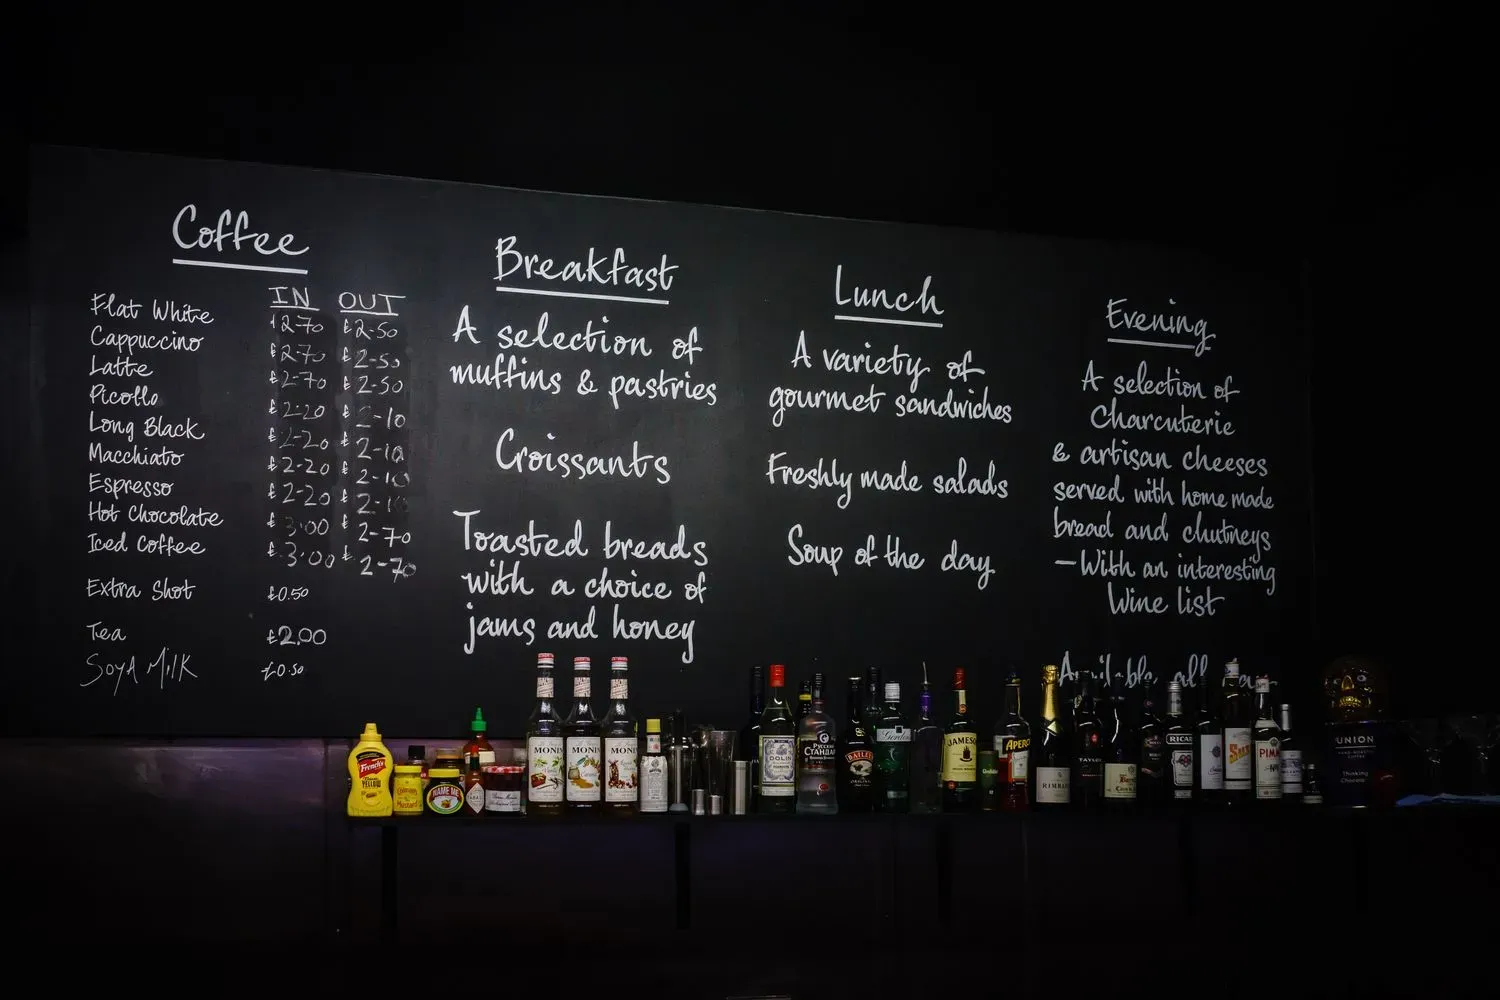 Coffee
IN OUT
Flat White £2.70 £2-50
Cappuccino £2.70 £2-50
Latte £2-70 £2-50
Picollo £2-20 £2-10
Long Black £2-20 £2-10
Macchiato £2-20 £2-10
Espresso £2-20 £2-10
Hot Chocolate £3.00 2-70
Iced Coffee £3.00 £2-70
Extra Shot £0.50
Tea £2.00
SOYA MILK £0.50
Breakfast
A selection of
muffins & pastries
Croissants
Toasted breads
with a choice of
jams and honey
Lunch
A variety of
gourmet sandwiches
Freshly made salads
Soup of the day
Evening
A selection of
Charcuterie
& artisan cheeses
served with home made
bread and chutneys
-With an interesting
Wine list
Available all
French's
NAME ME
MONIN
MONIN
MONIN
DOLIN
BAILEYS
Gordon's
JAMESON
APEROL
TAYLOR
RICARD
PIMM
UNION
Thinking